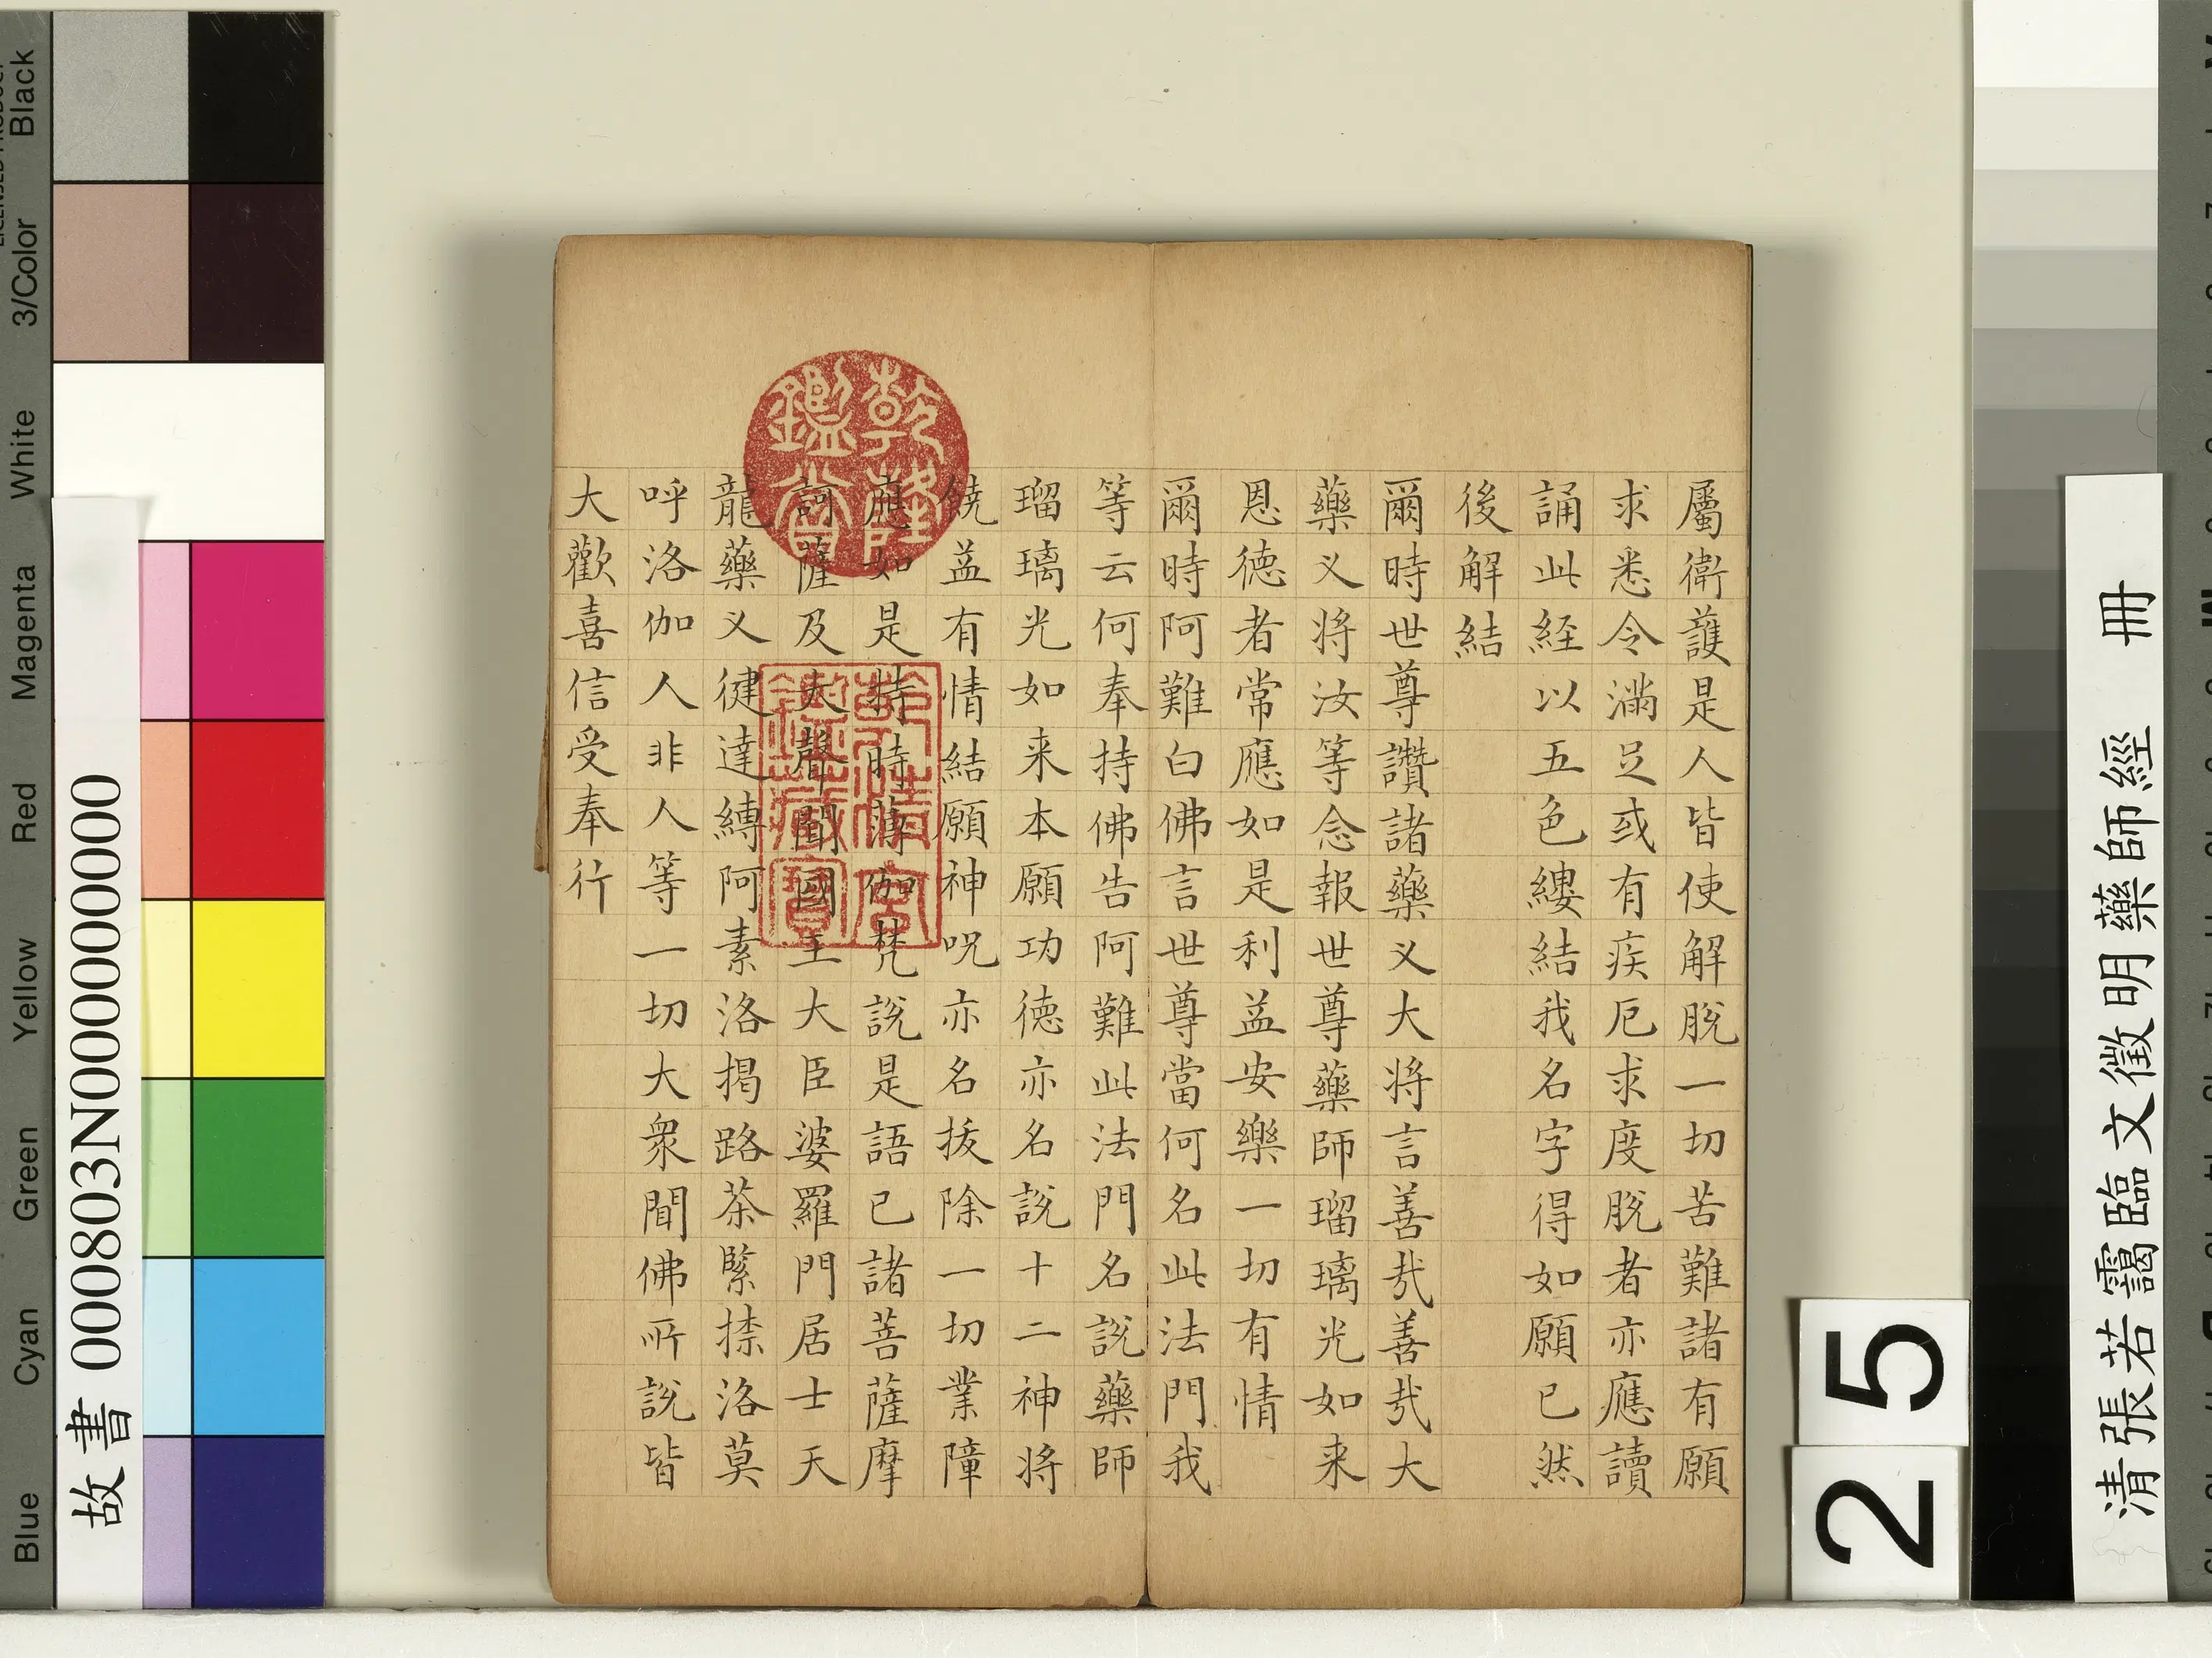 屬衞護是人皆使解脫一切苦難諸有願
求悉令滿足或有疾厄求度脫者亦應讀
誦此経以五色縷結我名字得如願已然
後解結
爾時世尊讚諸藥叉大将言善㢤善㢤大
藥叉将汝等念報世尊藥師瑠璃光如来
恩德者常應如是利益安樂一切有情
爾時阿難白佛言世尊當何名此法門我
等云何奉持佛告阿難此法門名說藥師
瑠璃光如来本願功德亦名說十二神将
饒益有情結願神呪亦名拔除一切業障
應如是持時薄伽梵說是語已諸菩薩摩
訶薩及大聲聞國王大臣婆羅門居士天
龍藥叉健達縛阿素洛揭路荼緊捺洛莫
呼洛伽人非人等一切大衆聞佛所說皆
大歡喜信受奉行
乾隆
鑑賞
乾清宮
鑑藏寶
清張若靄臨文徵明藥師經 冊
25
故書 000803N000000000
Blue Cyan Green Yellow Red Magenta White 3/Color Black